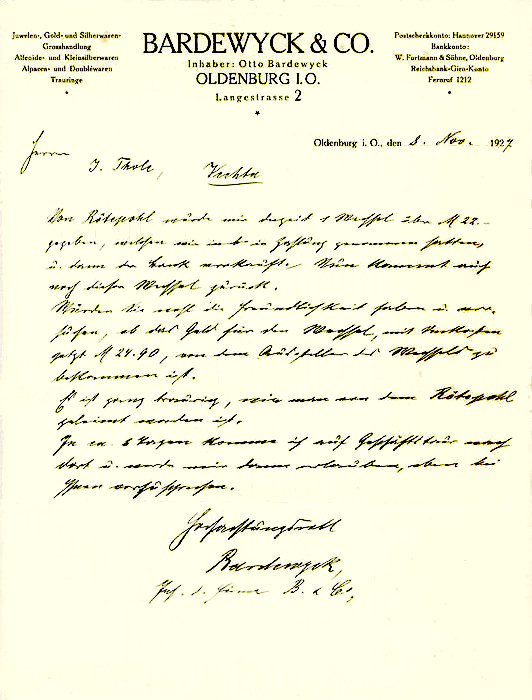 Juwelen-, Gold- und Silberwaren-
Grosshandlung
Alfenide- und Kleinsilberwaren
Alpacca- und Doubléwaren
Trauringe
BARDEWYCK & CO.
Inhaber: Otto Bardewyck
OLDENBURG I. O.
Langestrasse 2
Postscheckkonto: Hannover 29159
Bankkonto:
W. Fortmann & Söhne, Oldenburg
Reichsbank-Giro-Konto
Fernruf 1212
Oldenburg i. O., den 8. Nov. 1927
Herrn
J. Thole,
Vechta
Von Rötepohl wurde mir derzeit 1 Wechsel über M 22.-
gegeben, welchen wir in Zahlung genommen hatten,
u. dann der Bank verkauft. Nun kommt auch
noch dieser Wechsel zurück.
Würden Sie wohl die Freundlichkeit haben u. ver-
suchen, ob das Geld für den Wechsel, mit Unkosten
jetzt M 24.90, von dem Aussteller des Wechsels zu
bekommen ist.
Es ist ganz traurig, wie man von dem Rötepohl
geleimt worden ist.
In ca. 6 Tagen komme ich auf Geschäftstour nach
dort u. werde mir dann erlauben, eben bei
Ihnen vorzusprechen.
Hochachtungsvoll
Bardewyck,
Inh. d. Firma B. & Co,